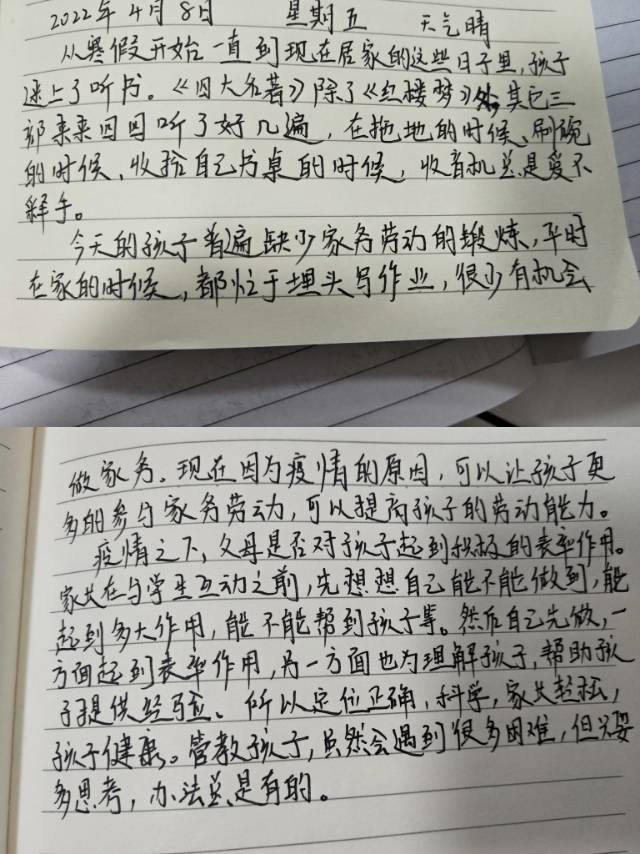 2022年4月8日 星期五 天气晴
从寒假开始一直到现在居家的这些日子里,孩子
迷上了听书。《四大名著》除了《红楼梦》其它三
部来来回回听了好几遍,在拖地的时候、刷碗
的时候、收拾自己书桌的时候,收音机总是爱不
释手。
今天的孩子普遍缺少家务劳动的锻炼,平时
在家的时候,都忙于埋头写作业,很少有机会
做家务。现在因为疫情的原因,可以让孩子更
多的参与家务劳动,可以提高孩子的劳动能力。
疫情之下,父母是否对孩子起到积极的表率作用。
家长在与学生互动之前,先想想自己能不能做到,能
起到多大作用,能不能帮到孩子等。然后自己先做,一
方面起到表率作用,另一方面也为理解孩子,帮助孩
子提供经验。所以定位正确,科学,家长轻松,
孩子健康。管教孩子,虽然会遇到很多困难,但只要
多思考,办法总是有的。